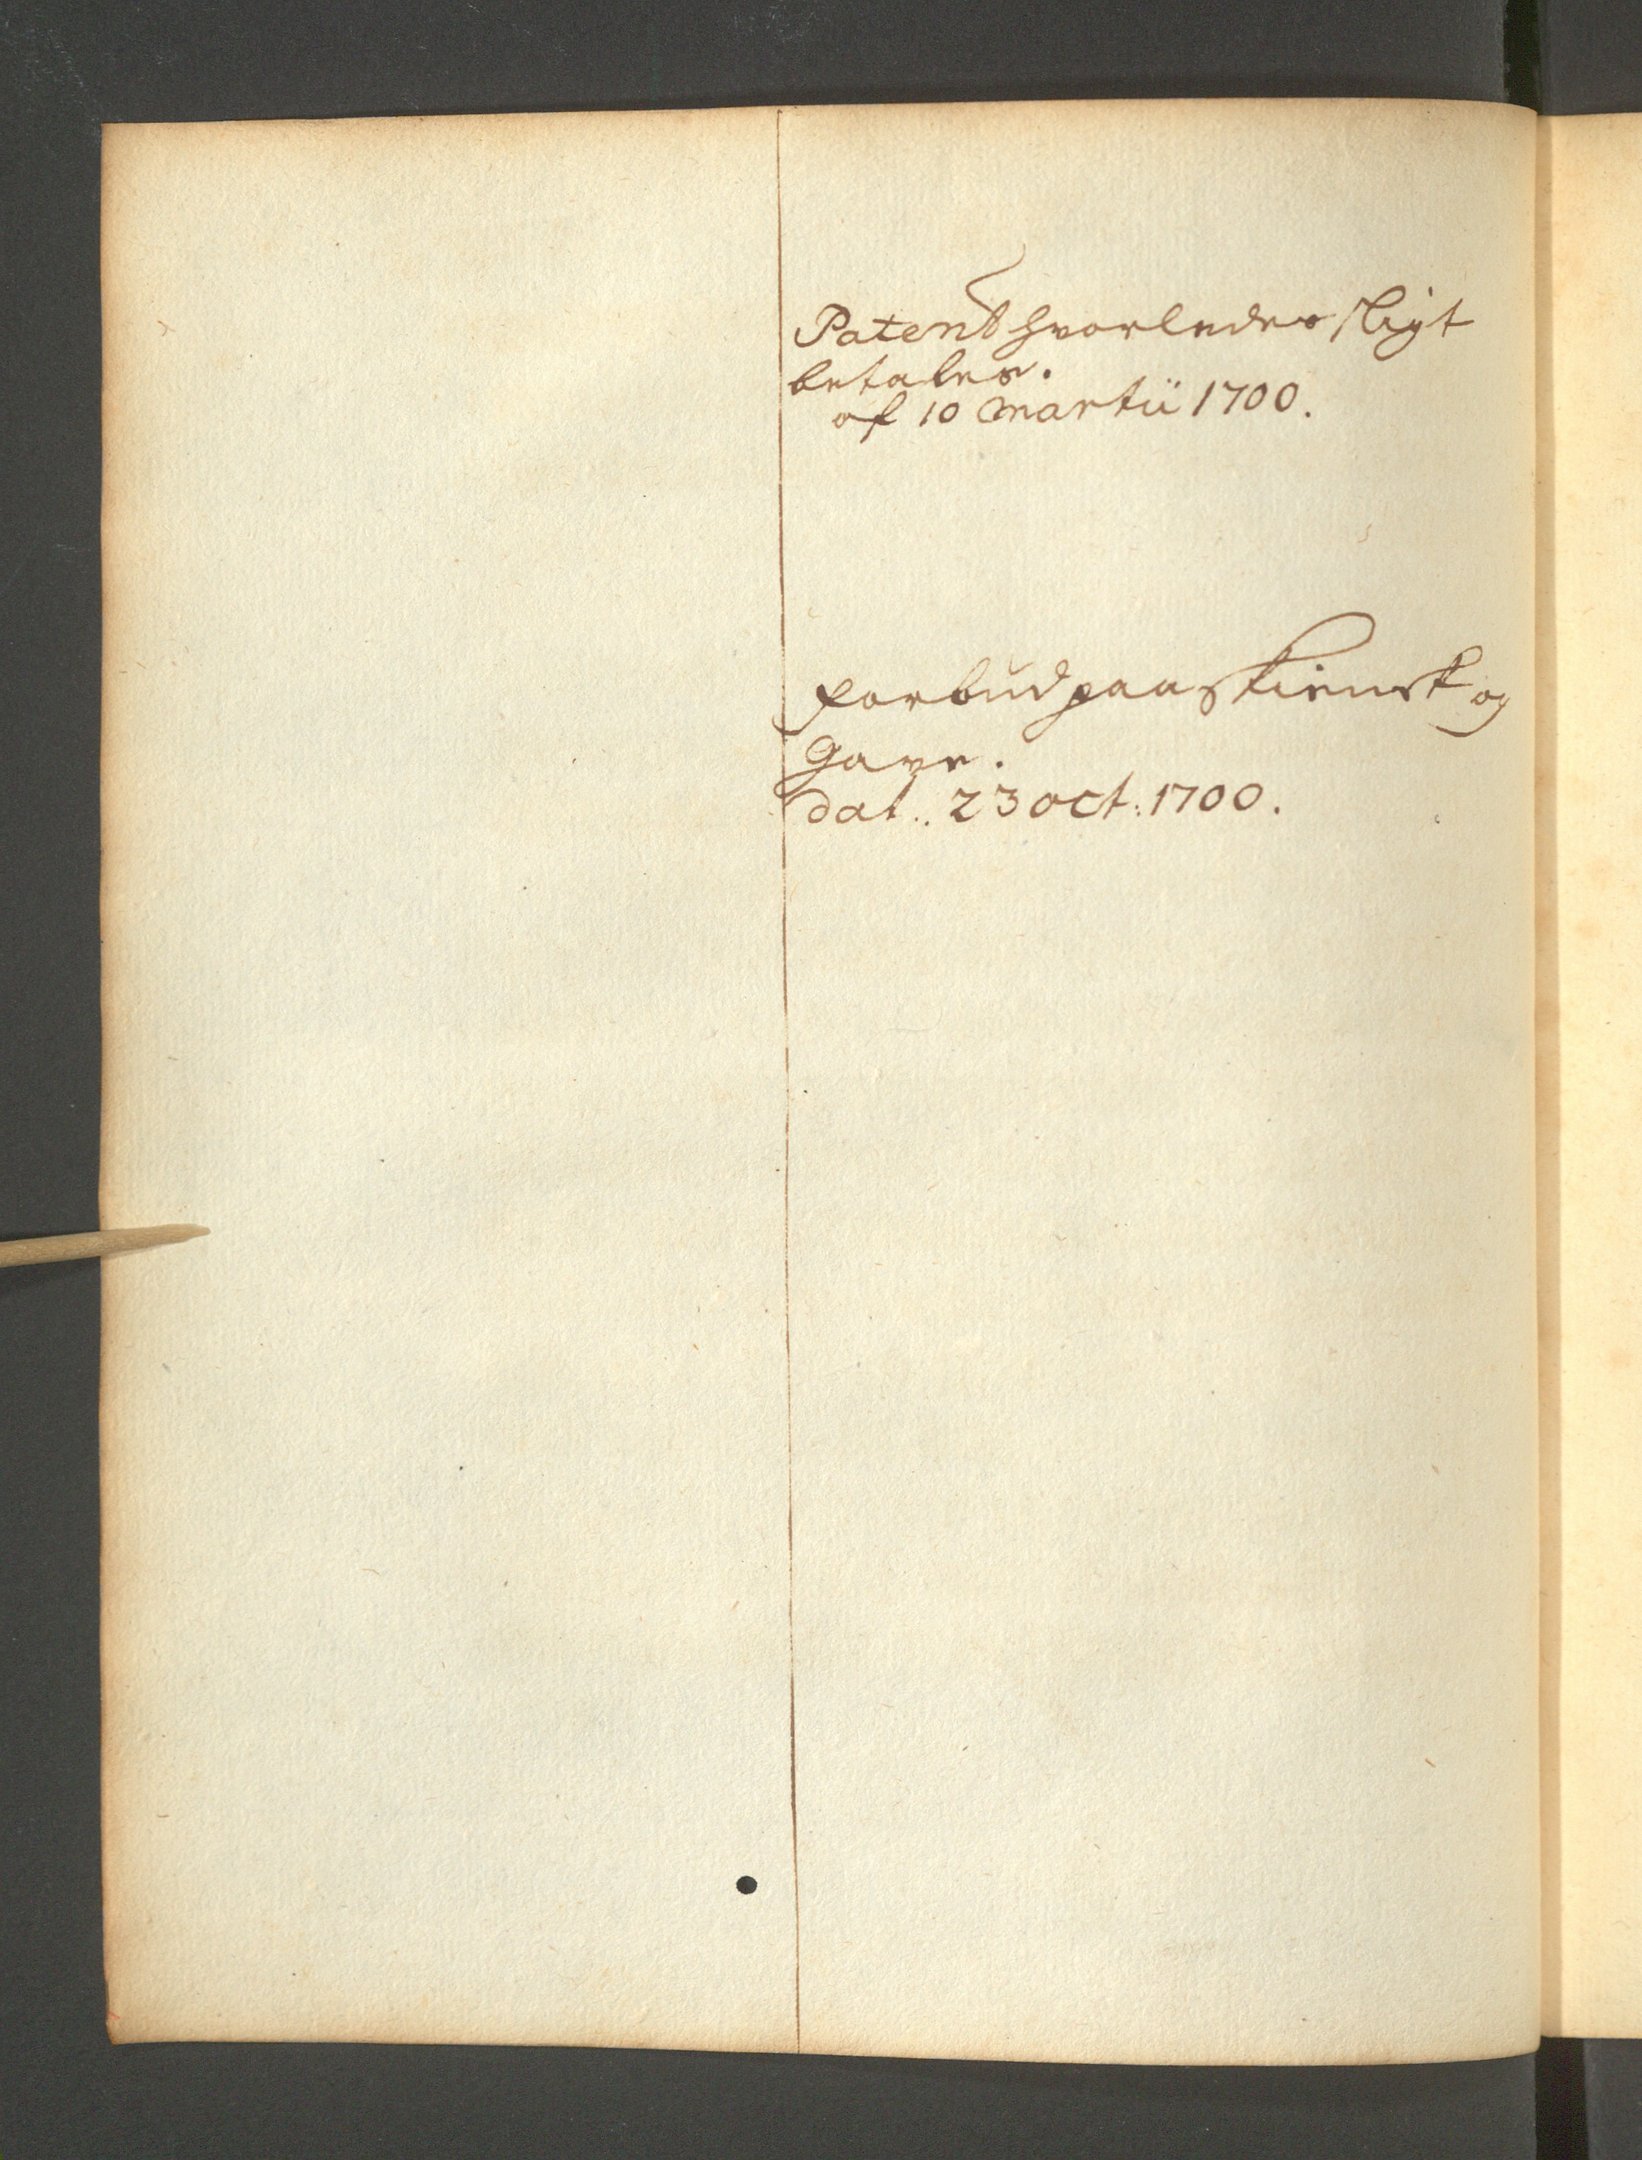 Patent hvorledes sligt
betales.
af 10 Martii 1700.
forbud paa Skienk og
Gave.
dat.. 23 oct: 1700.